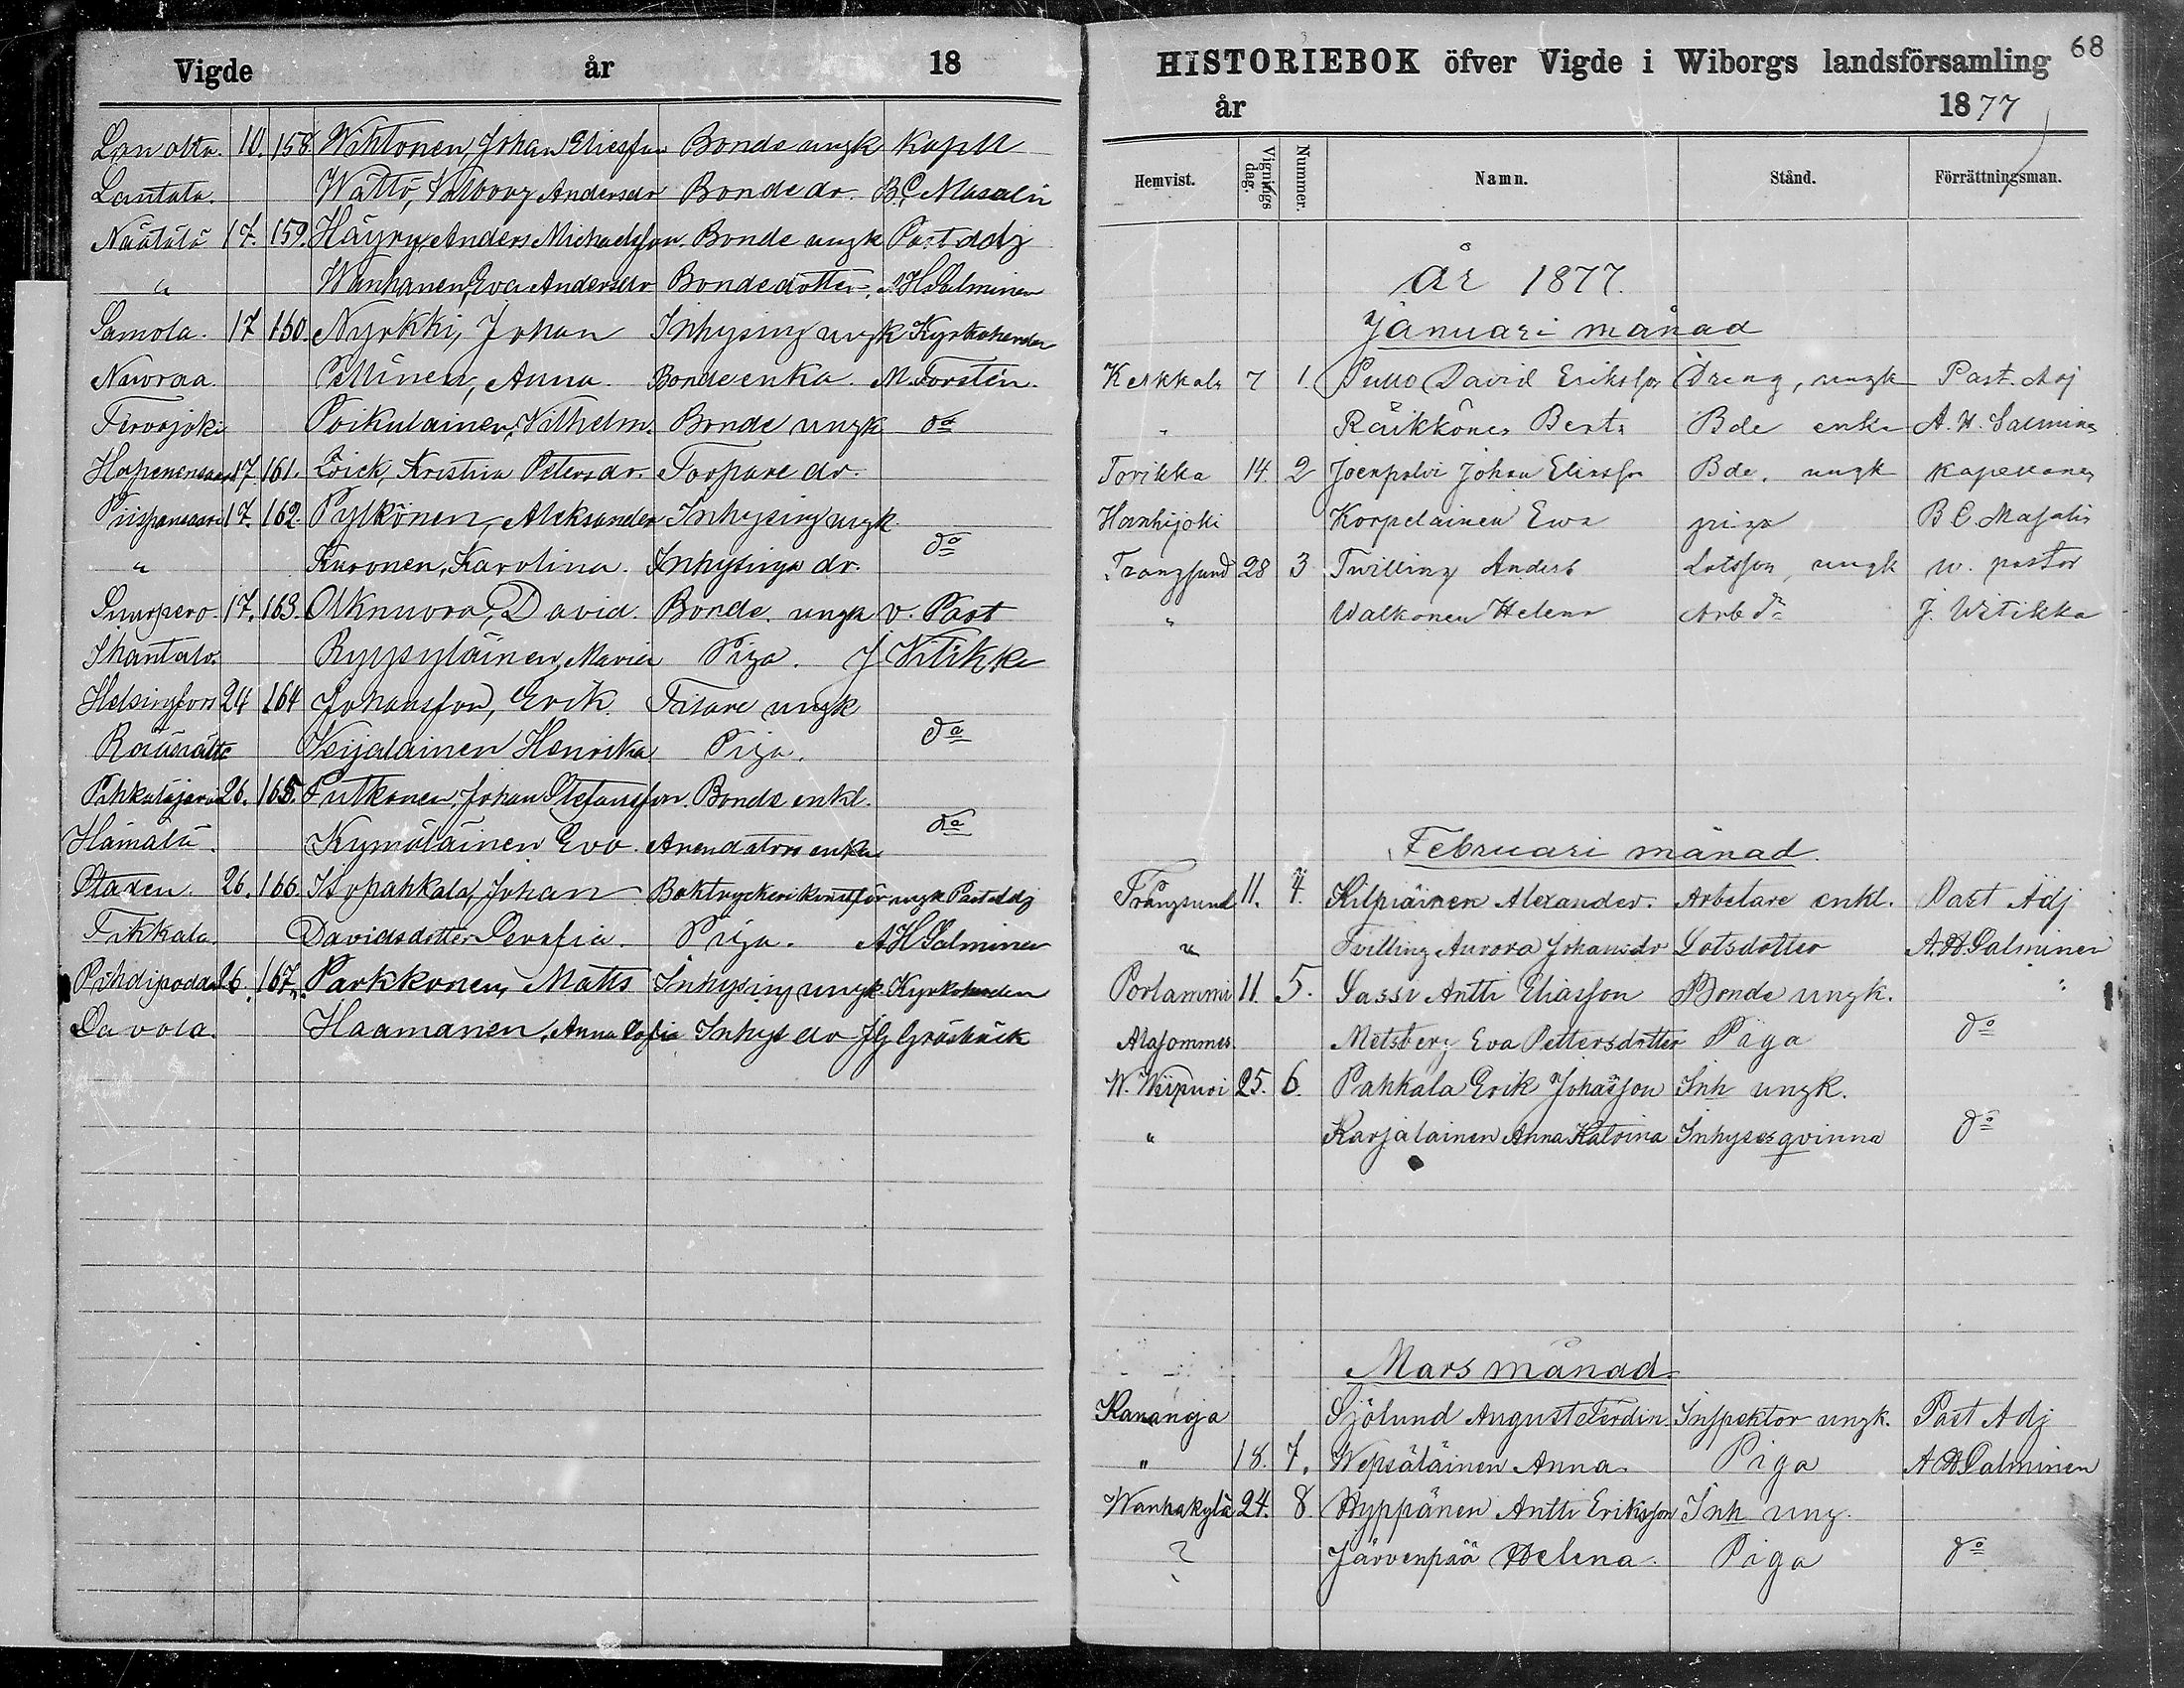 Vigde år 18
10. 158. Wihtonen, Johan Eliasson Bonde ungk Kapll
Lantala. Wättö, Valborg Andersdr Bonde dr. B.C. Masalin
Näätälä 17. 159. Häyry, Anders Michaelsson. Bonde ungk Past Adj
" Wanhanen, Eva Andersdr Bondedotter. A H Salminen
Samola. 17 160. Nyrkki, Johan Inhysing ungk Kyrkoherden
Nuoraa. Pellinen, Anna. Bondeenka. M. Forstén.
Tervajoki Poikulainen, Vilhelm. Bonde ungk do
17. 161. Kristina Petersdr. Torpare dr.
Piispansaari 17. 162. Pylkönen, Aleksander Inhysing ungk
" Kuronen, Karolina. Inhysings dr. do
Suurpero 17. 163. Oknuora, David. Bonde ungk v. Past
Ihantala. Ryysyläinen, Maria Piga. J Vitikka
Helsingfors 24 164 Johansson, Erik. Filare ungk
Veijalainen Henrika Piga. do
Pihkalajärvi 26. 165. Putkonen, Johan Stefansson. Bonde enkl.
Hämälä. Kymäläinen Eva. Arendators enka do
Staden. 26. 166. Isopahkala, Johan Boktryckerikonstför ungk Past Adj
Tikkala. Davidsdotter Serafia. Piga. A H Salminen
26. 167. Parkkonen, Matts Inhysing ungk. Kyrkoherden
Davola. Haamanen, Anna Sofia Inhys dr J G Gråsbäck
68
HISTORIEBOK öfver Vigde i Wiborgs landsförsamling
år 1877
Hemvist. Vignings dag. Nummer. Namn. Stånd. Förrättningsman.
År 1877.
Januari månad
Kerkkala 7 1. Pullo David Eriksson Dreng, ungk Past. Adj
" Räikkönen Berta Bde enka A. H. Salminen
Torikka 14. 2 Joenpolvi Johan Eliasson Bde. ungk Kapellanen
Hanhijoki Korpelainen Ewa piga B C Masalin
Trangsund 28 3 Twilling Anders Lotsson, ungk w. pastor
" Walkonen Helena Arb dr J. Witikka
Februari månad.
Trångsund 11. 4. Kilpiäinen Alexander. Arbetare enkl. Past Adj
" Tvilling Aurora Johansdr Lotsdotter A. H. Salminen
Porlammi 11. 5. Sassi Antti Eliasson Bonde ungk. "
Alasommes. Metsberg Eva Pettersdotter Piga do
W. Wiipuri 25. 6. Pahkala Erik Johasson Inh ungk.
" Karjalainen Anna Katrina Inhyses qvinna do
Mars månad.
Kananoja Sjölund August Ferdin. Inspektor ungk. Past Adj
" 18. 7. Wepsäläinen Anna Piga A H Salminen
Wanhakylä 24. 8. Hyppänen Antti Eriksson Inh ung.
? Järvenpää Helena. Piga do